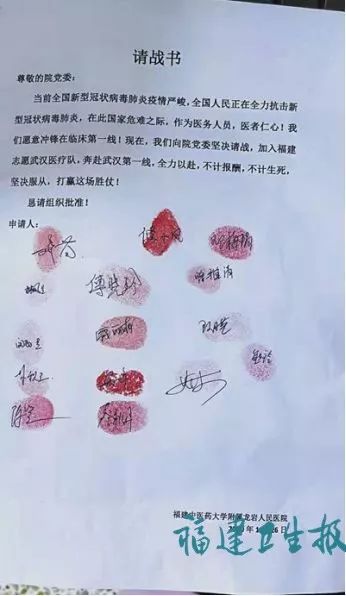 请战书
尊敬的院党委：
当前全国新型冠状病毒肺炎疫情严峻，全国人民正在全力抗击新
型冠状病毒肺炎，在此国家危难之际，作为医务人员，医者仁心！我
们愿意冲锋在临床第一线！现在，我们向院党委坚决请战，加入福建
志愿武汉医疗队，奔赴武汉第一线，全力以赴，不计报酬，不计生死，
坚决服从，打赢这场胜仗！
恳请组织批准！
申请人：
傅晓珍
福建中医药大学附属龙岩人民医院
26 日
福建卫生报